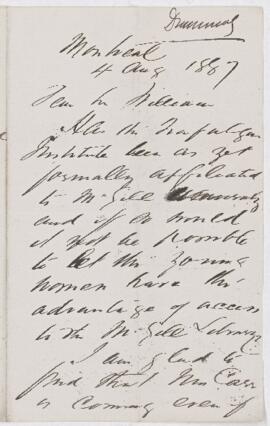 Drummond
Montreal
4 Aug 1887
Dear Sir William
Has the Trafalgar
Institute been as yet
formally affiliated
to McGill University
and if so would
it not be possible
to let the young
women have the
advantage of access
to the McGill Library
I am glad to
find that Mr
is coming even if